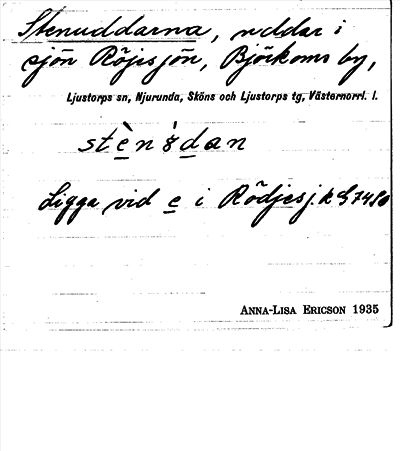 Stenuddarna, uddar i
sjön Röjesjön, Björkoms by,
Ljustorps sn, Njurunda, Sköns och Ljustorps tg, Västernorrl. l.
Ligga vid e i Rödjesj.
ANNA-LISA ERICSON 1935